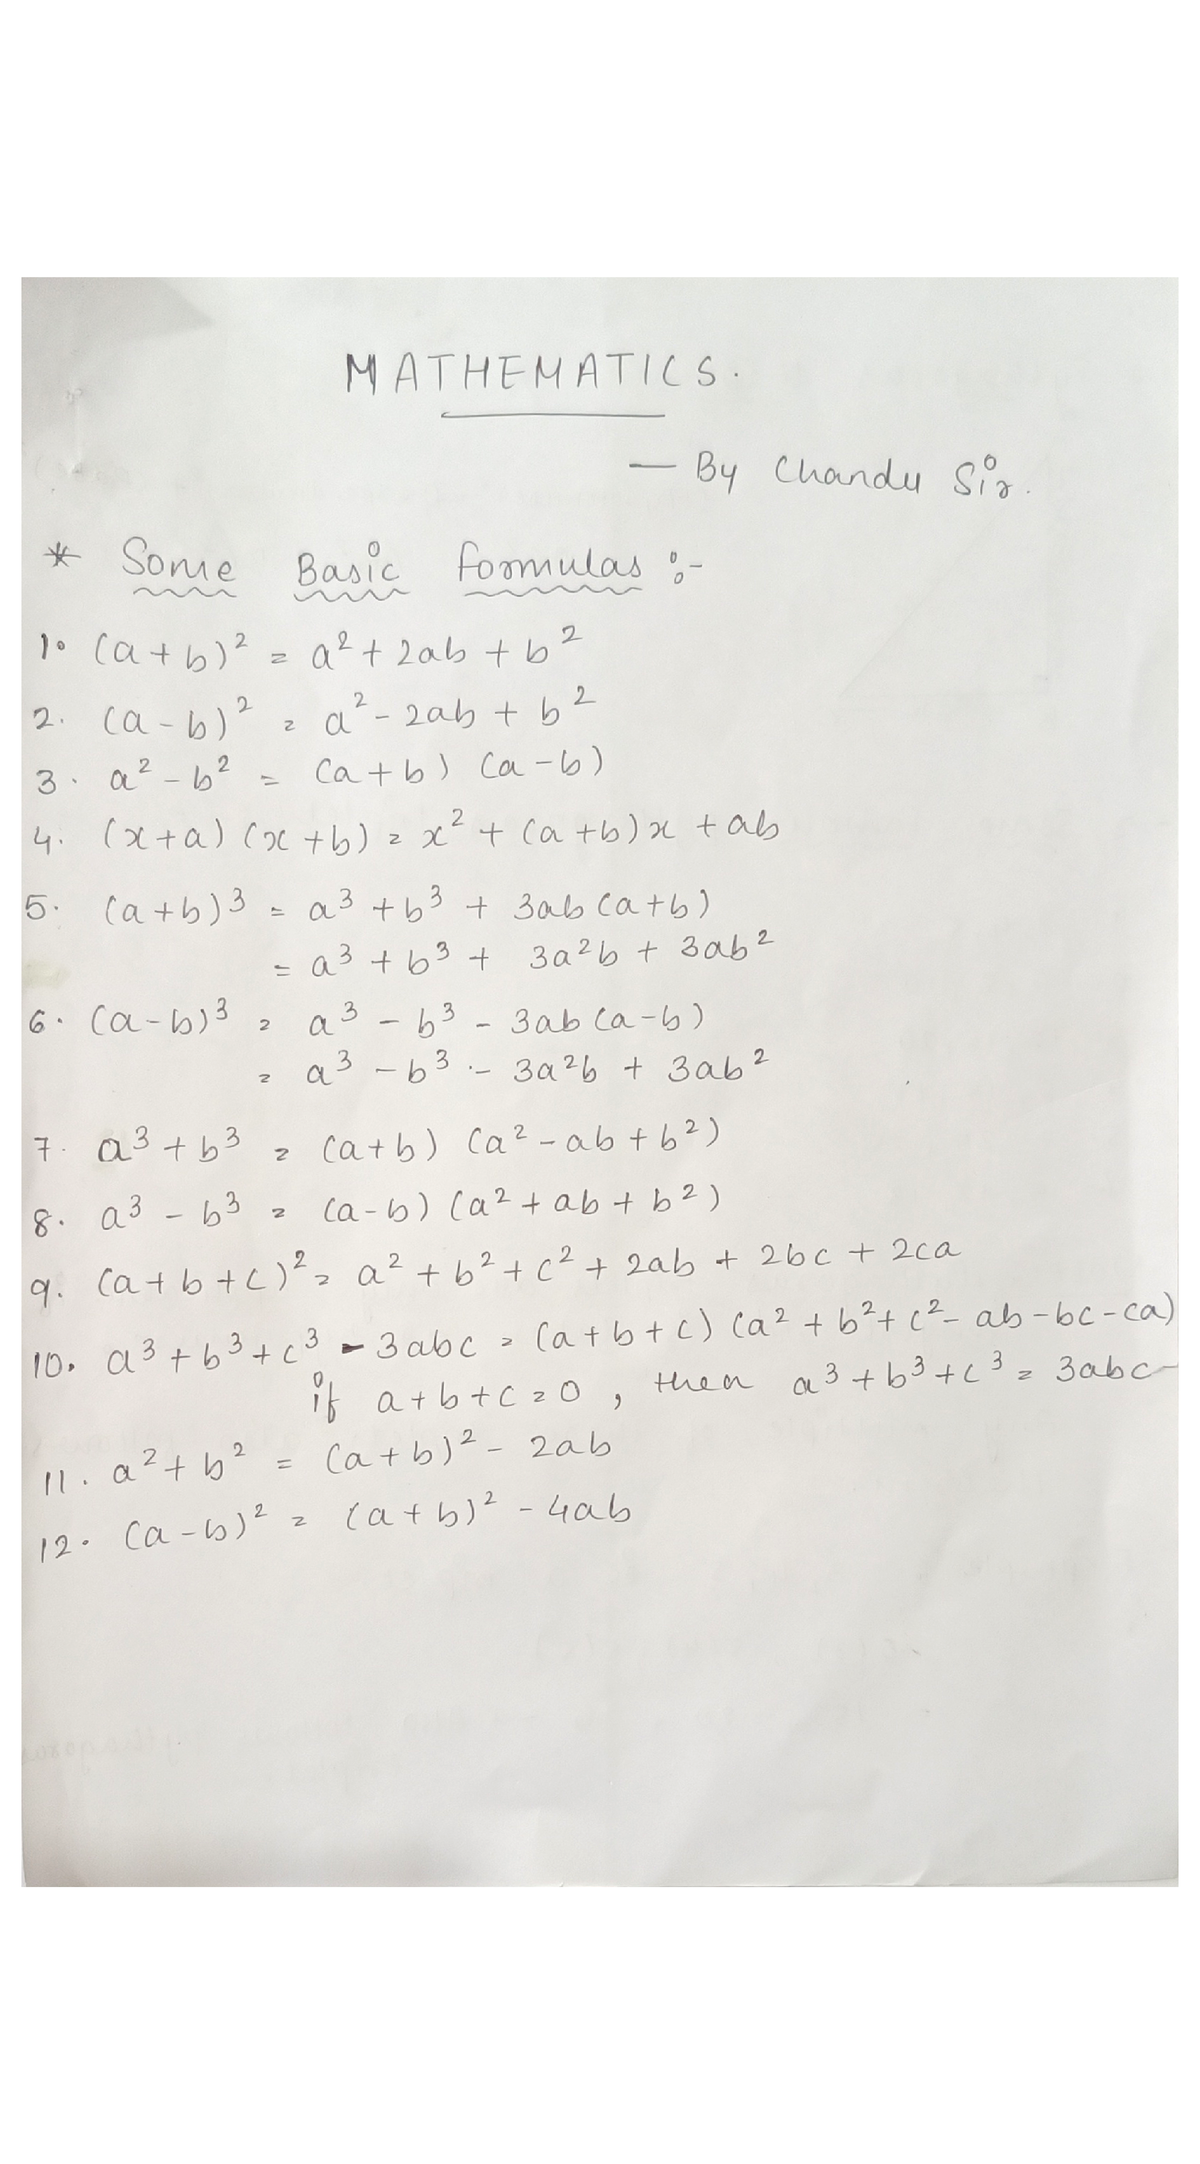 MATHEMATICS.
— By Chandu Sir.
* Some Basic formulas :-
1. (a+b)² = a² + 2ab + b²
2. (a-b)² = a² - 2ab + b²
3. a² - b² = (a+b) (a-b)
4. (x+a) (x+b) = x² + (a+b)x + ab
5. (a+b)³ = a³ + b³ + 3ab(a+b)
= a³ + b³ + 3a²b + 3ab²
6. (a-b)³ = a³ - b³ - 3ab(a-b)
= a³ - b³ - 3a²b + 3ab²
7. a³ + b³ = (a+b) (a² - ab + b²)
8. a³ - b³ = (a-b) (a² + ab + b²)
9. (a+b+c)² = a² + b² + c² + 2ab + 2bc + 2ca
10. a³ + b³ + c³ - 3abc = (a+b+c) (a² + b² + c² - ab - bc - ca)
if a+b+c=0, then a³ + b³ + c³ = 3abc
11. a² + b² = (a+b)² - 2ab
12. (a-b)² = (a+b)² - 4ab